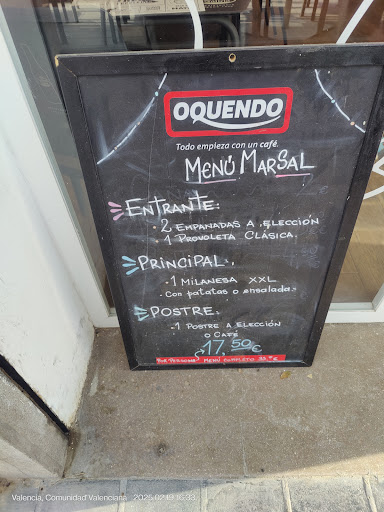 OQUENDO
Todo empieza con un café
MENÚ MARSAL
ENTRANTE:
· 2 EMPANADAS A ELECCIÓN
1 PROVOLETA CLÁSICA.
PRINCIPAL:
· 1 MILANESA XXL
- Con patatas o ensalada.
POSTRE:
· 1 POSTRE A ELECCIÓN
O CAFÉ
17,50€
POR PERSONA MENÚ COMPLETO
Valencia, Comunidad Valenciana 2025